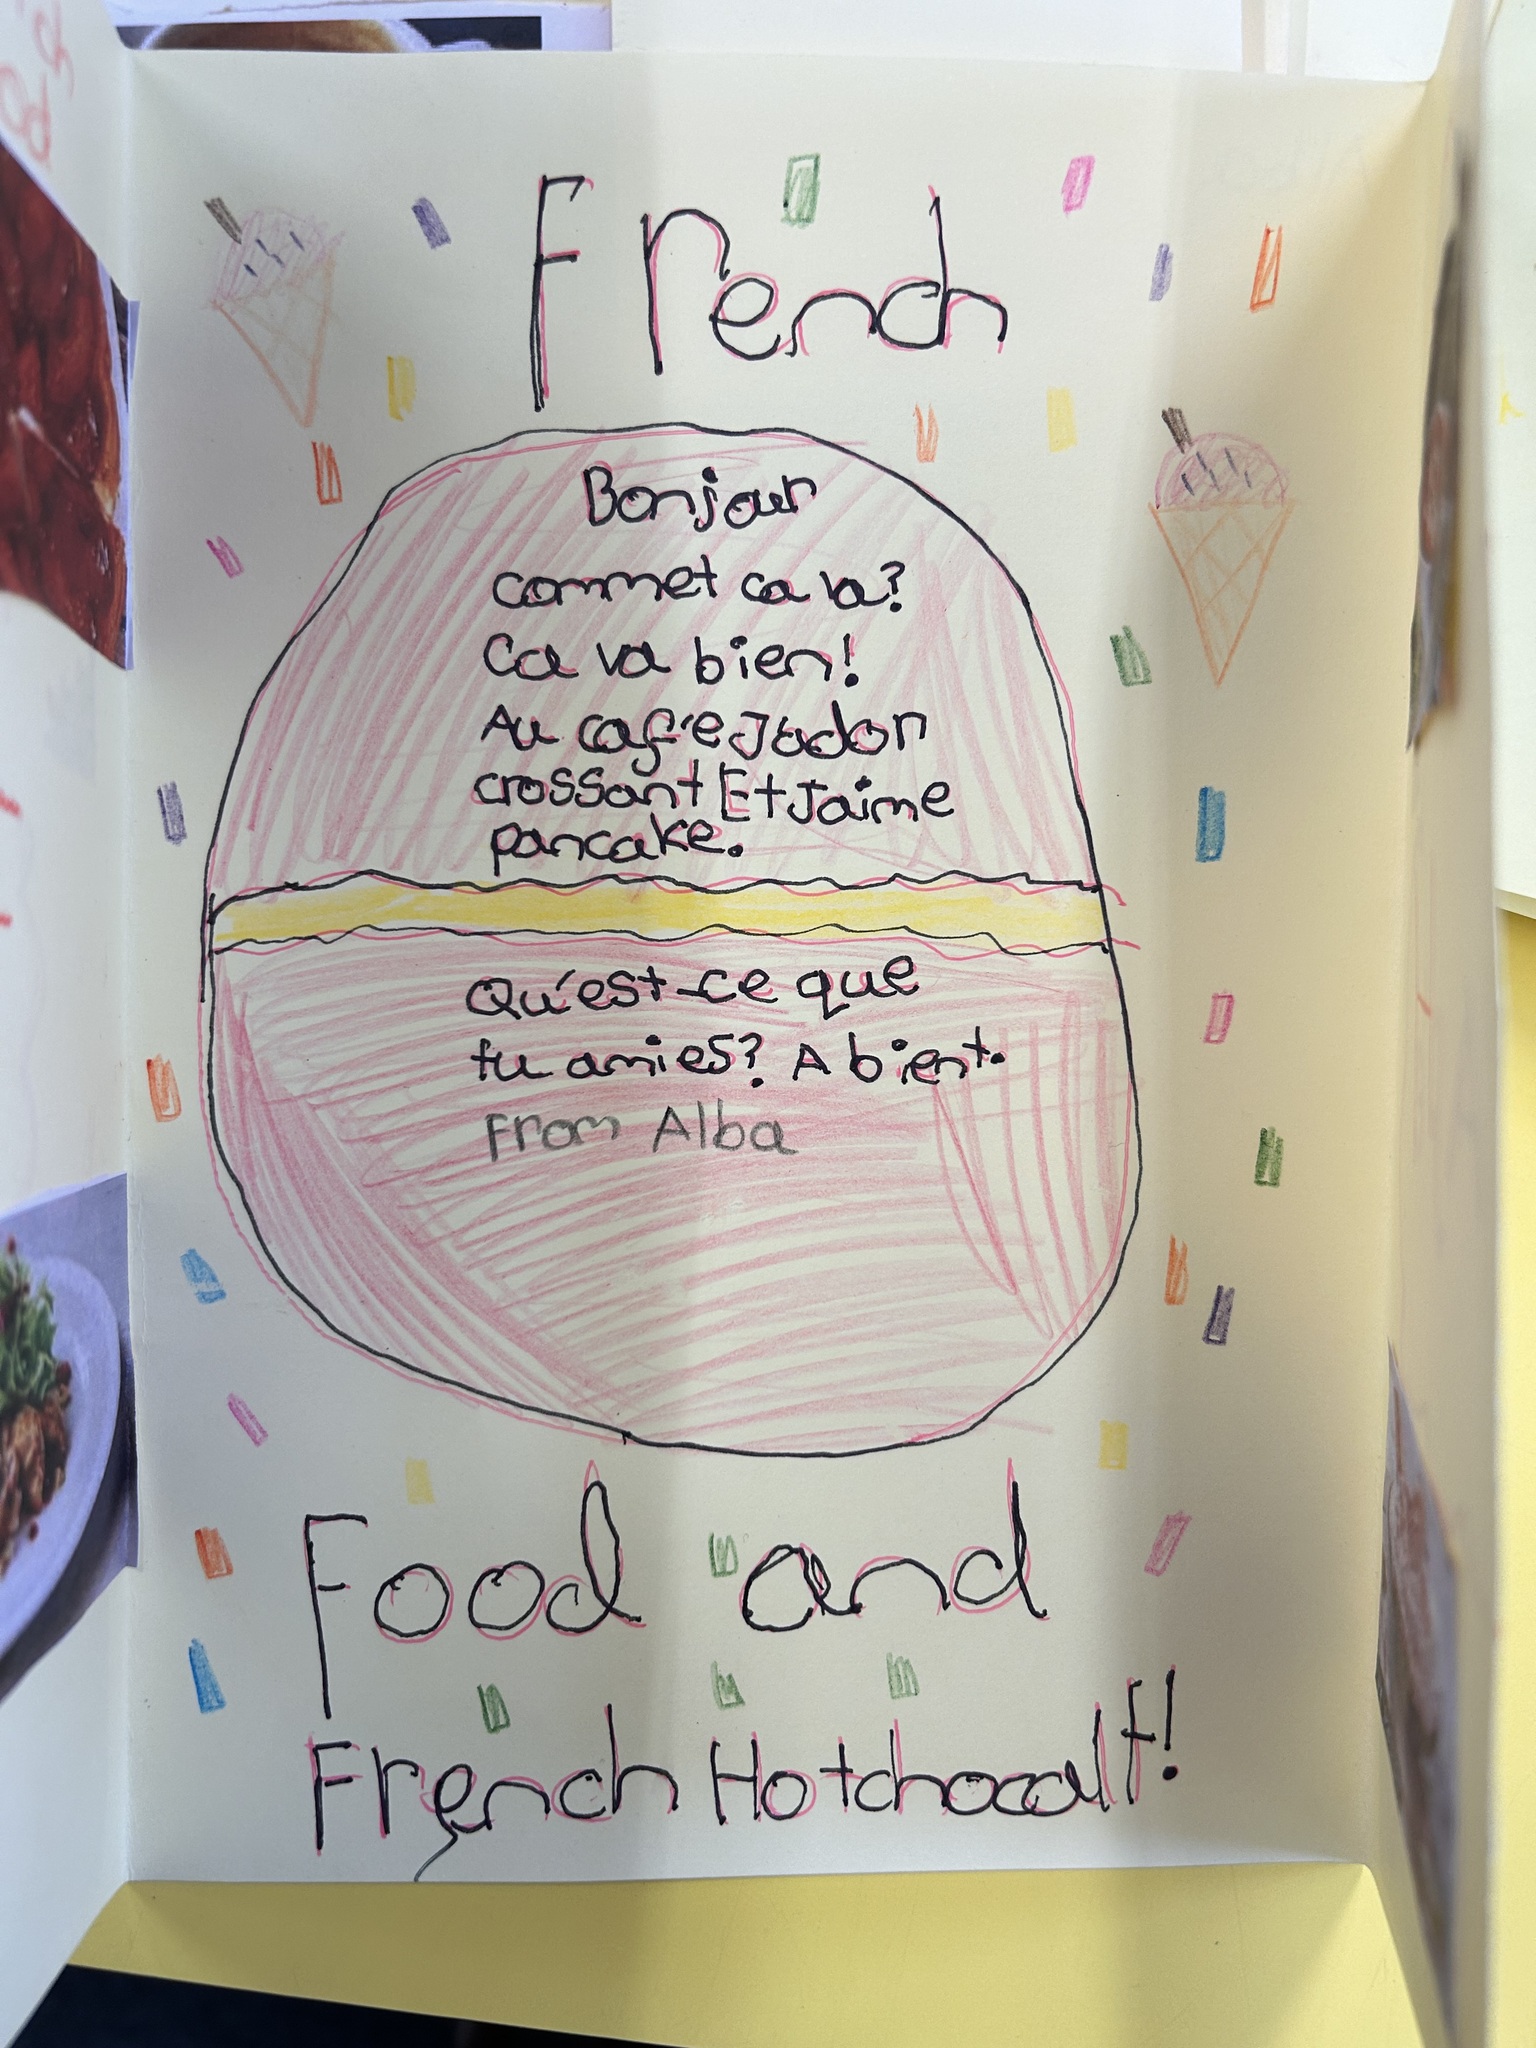 French
Bonjour
commet ca va?
Ca va bien!
Au caf'e J'ador
crossant Et Jaime
pancake.
Qu'est-ce que
tu amies? A bient.
From Alba
Food and
French Hotchocalt!